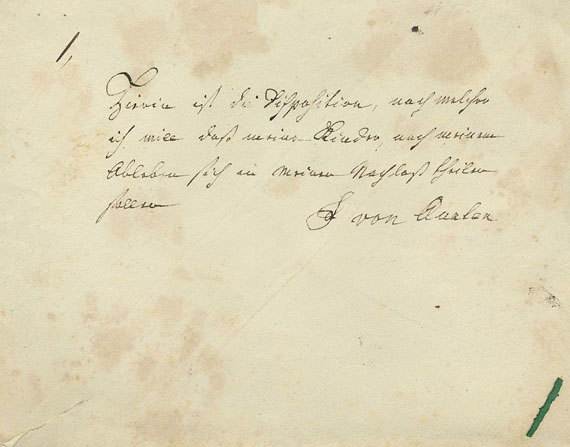 1,
Hierin ist die Disposition, nach welcher
ich will daß meine Kinder nach meinem
Ableben sich in meinen Nachlaß theilen
sollen
von Qualen